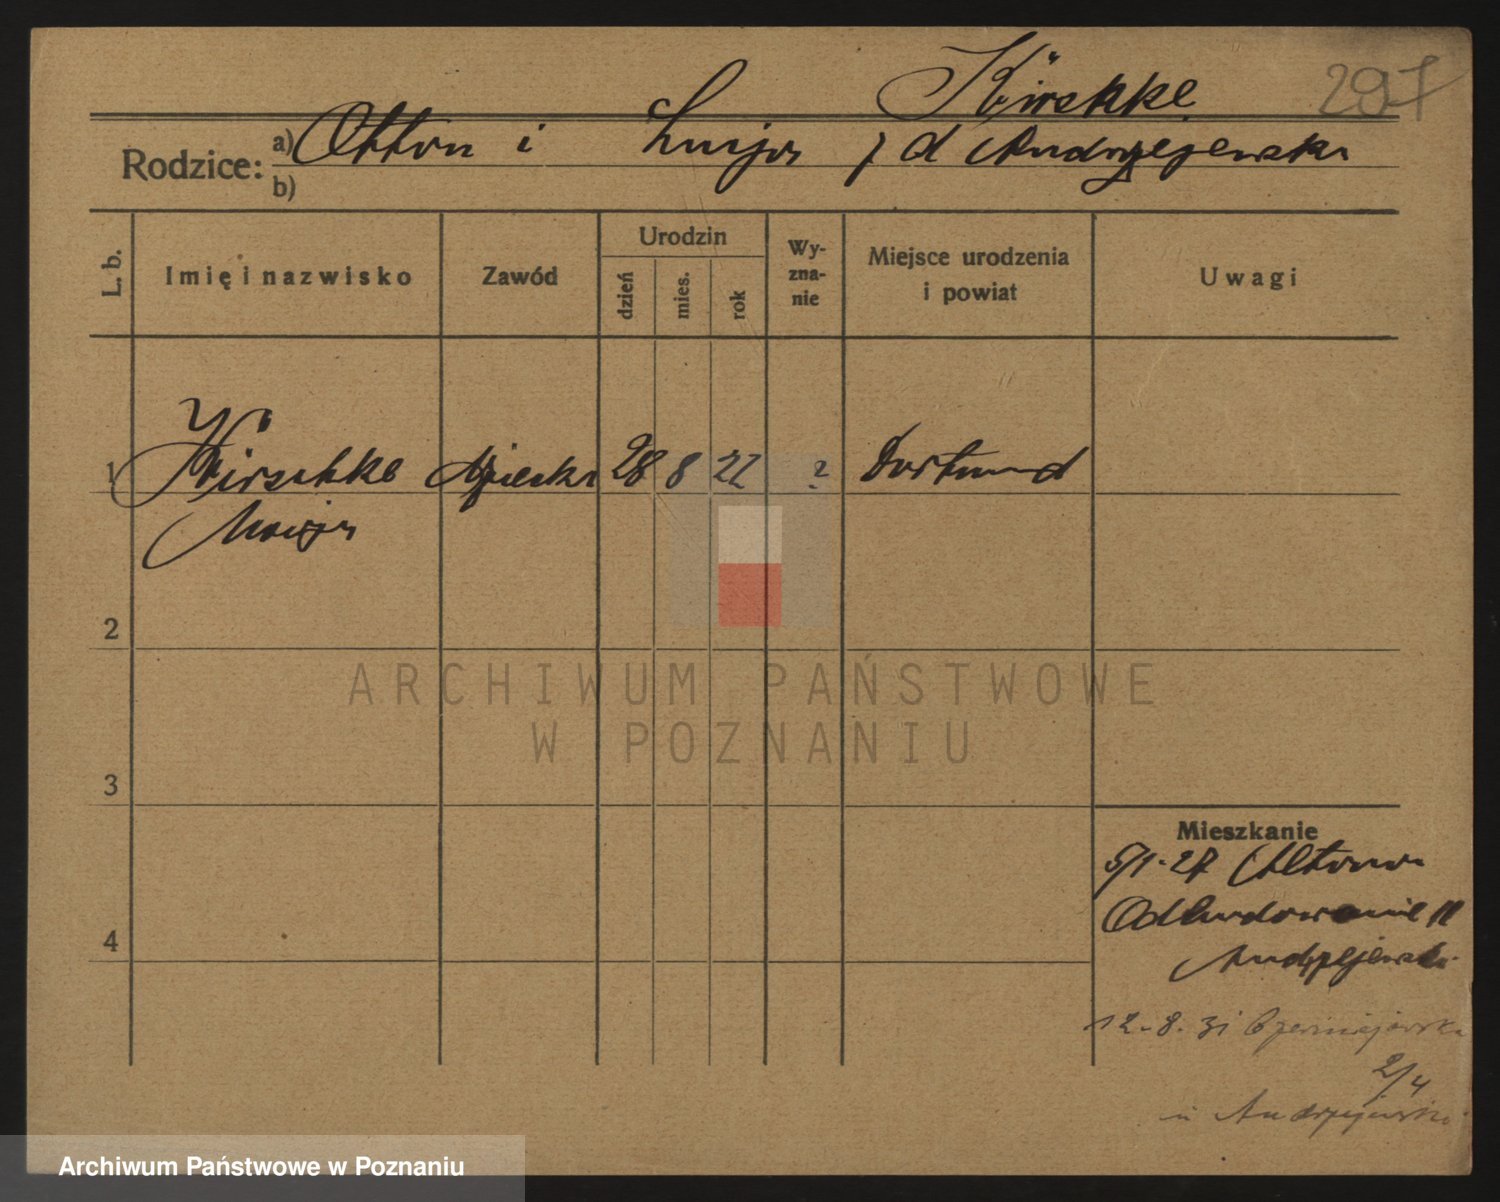 Kirschke 297
Rodzice: a) Otton i Lucja z d Andrzejewska
b)
L. b. Imię i nazwisko Zawód Urodzin dzień mies. rok Wy-zna-nie Miejsce urodzenia i powiat Uwagi
1 Kirschke dziecko 28 8 22 ? Dortmund
Maria
2
ARCHIWUM PAŃSTWOWE
W POZNANIU
3
Mieszkanie
5/1-27
4
Andrzejewski
12-8-31
2/4
u Andrzejewski
Archiwum Państwowe w Poznaniu